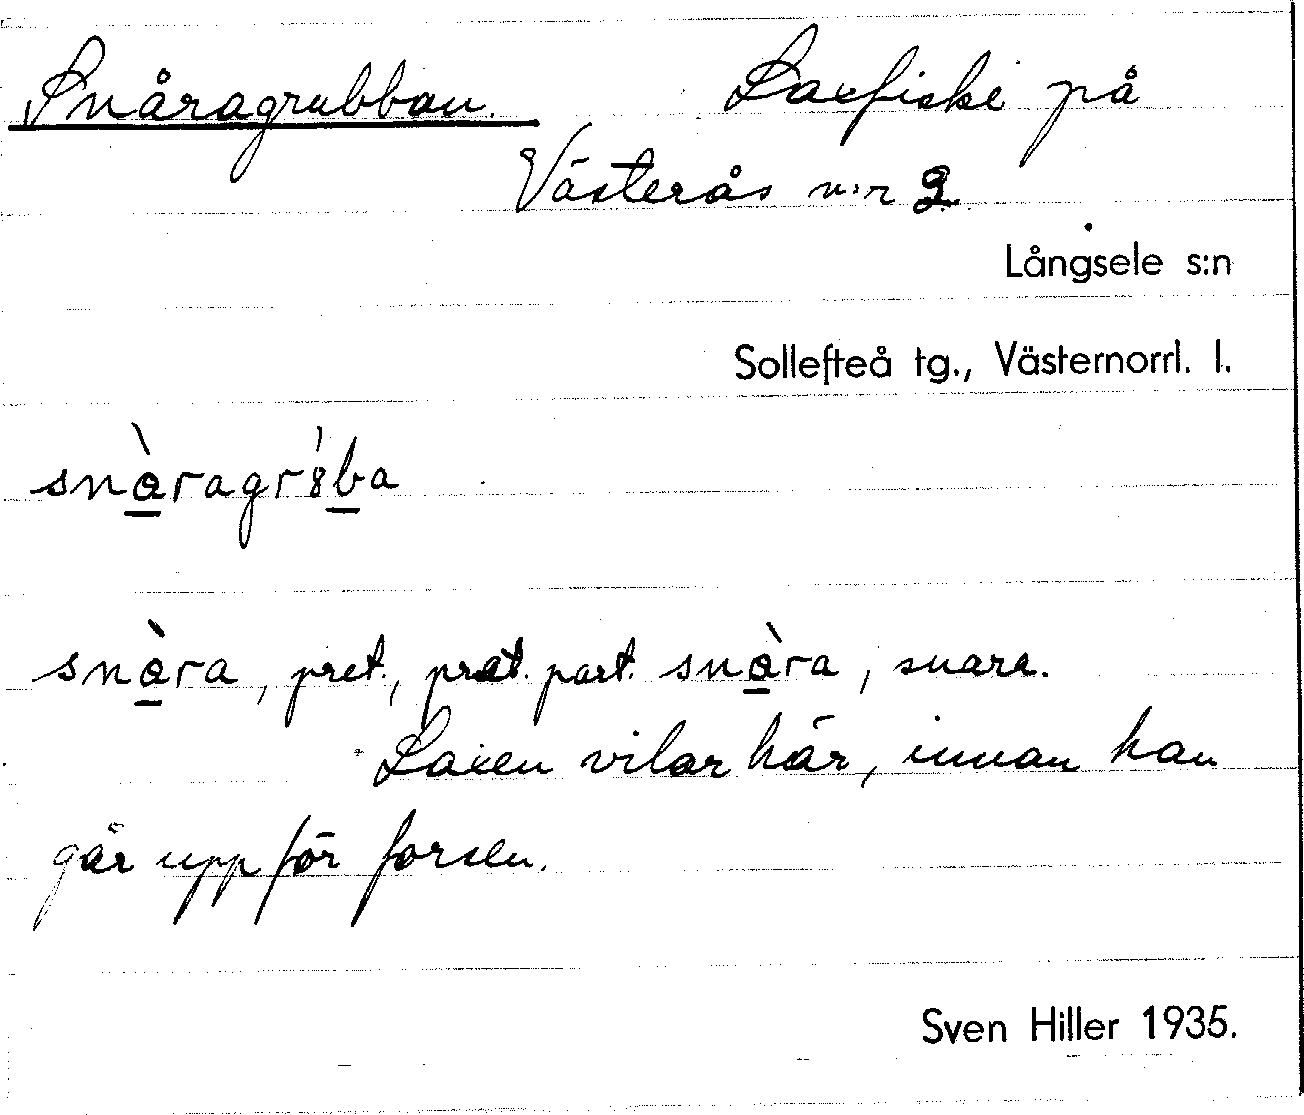 Snåragrubban. Laxfiske på
Västerås n:r 2.
Långsele s:n
Sollefteå tg., Västernorrl. l.
snàragr8́ba
snàra, pret., pret. part. snàra, snara.
Laxen vilar här, innan han
går upp för forsen.
Sven Hiller 1935.